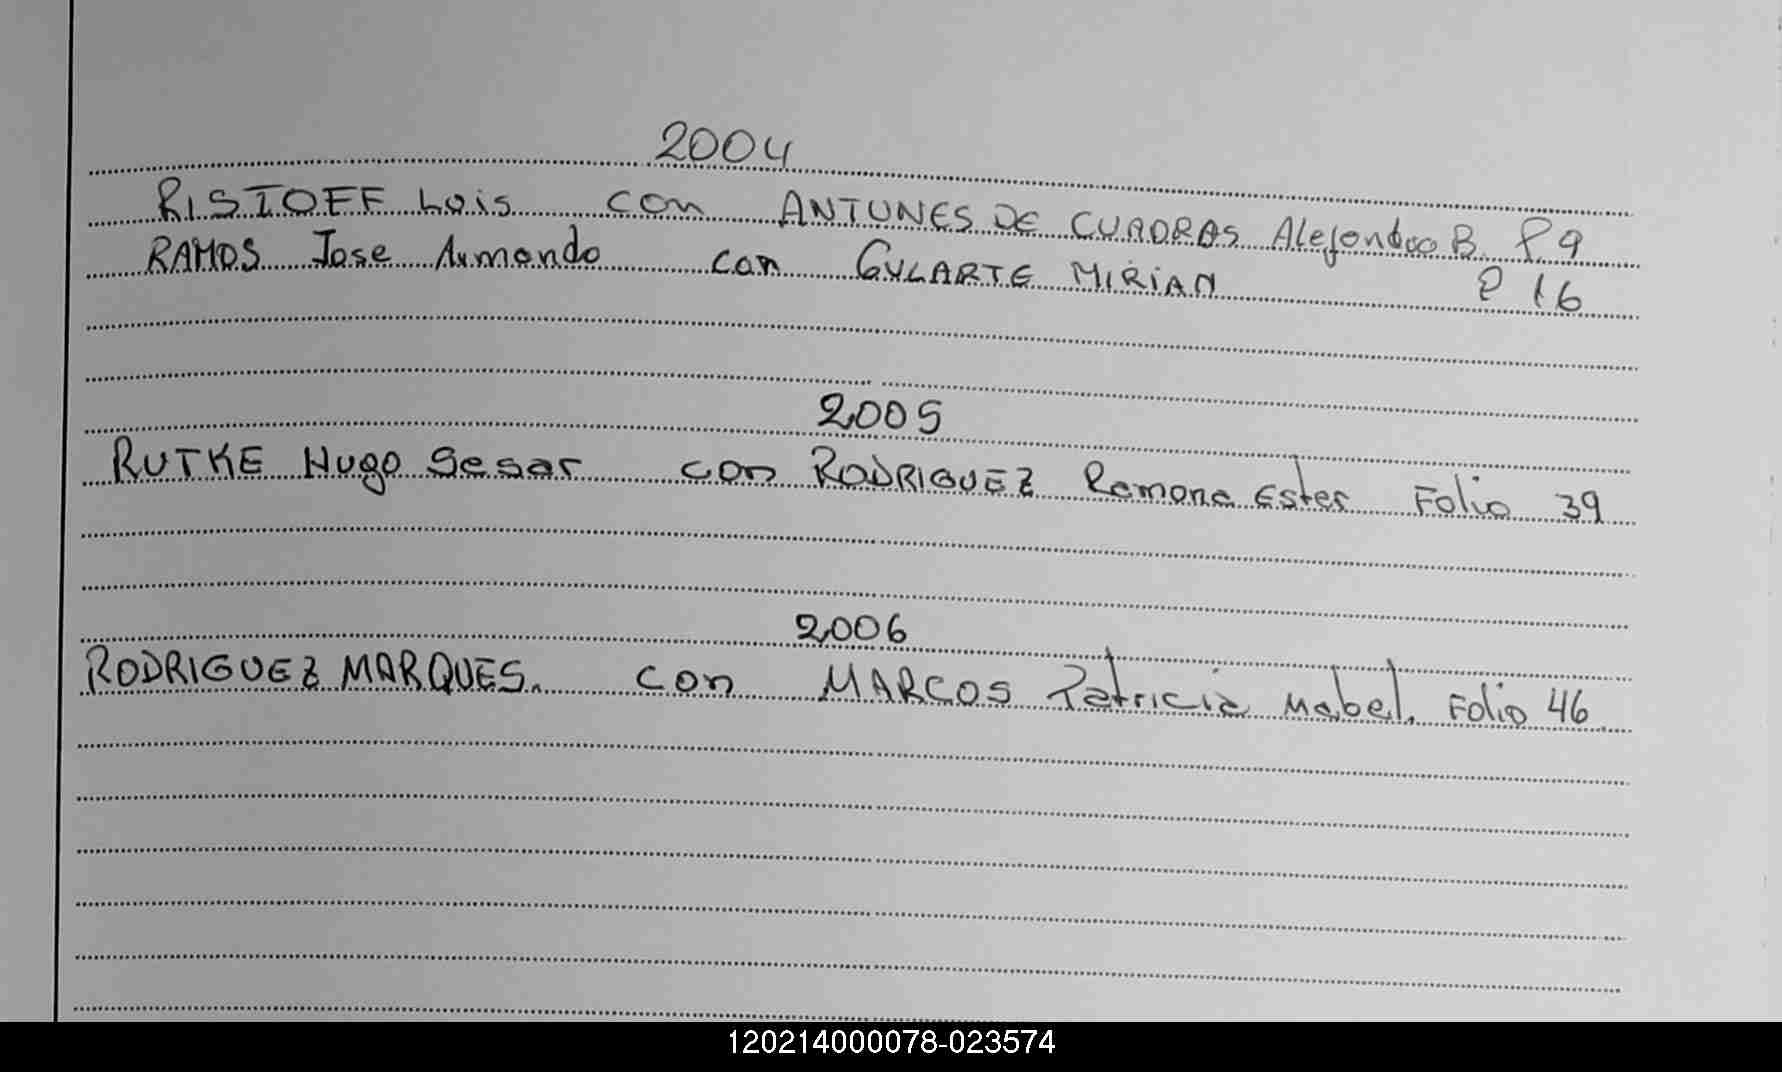 2004
RISTOFF Luis con ANTUNES DE CUADRAS Alejandra B. F 9
RAMOS Jose Armando con GULARTE MIRIAN F 16
2005
RUTKE Hugo Sesar con RODRIGUEZ Ramona Ester Folio 39
2006
RODRIGUEZ MARQUES. con MARCOS Patricia Mabel. Folio 46
120214000078-023574